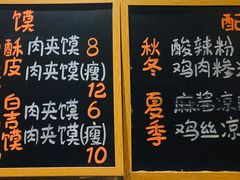 馍
酥皮
肉夹馍 8
肉夹馍(瘦)
12
白吉馍
肉夹馍 6
肉夹馍(瘦)
10
配
秋冬
酸辣粉
鸡肉糁
夏季
麻酱凉
鸡丝凉